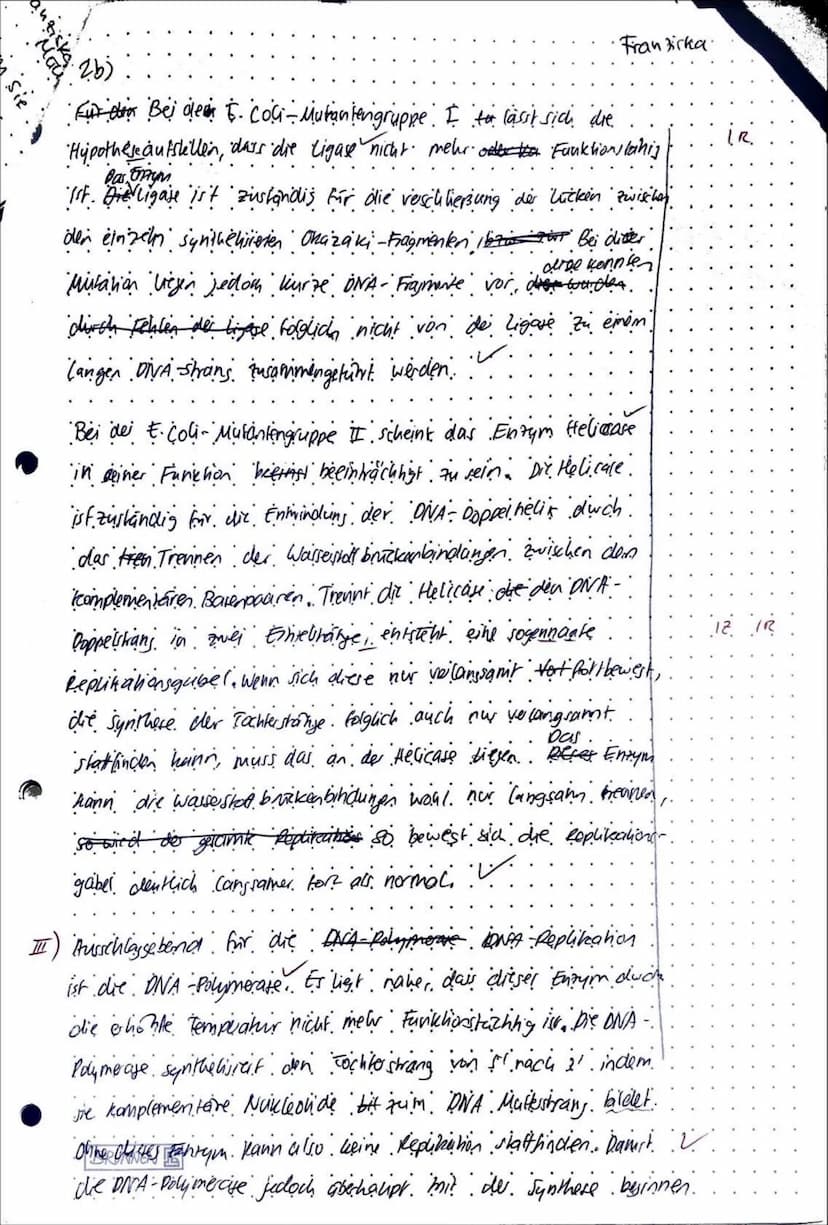 Franziska
2b)
Für den Bei der E. Coli-Mutantengruppe I lässt sich die
Hypothese aufstellen, dass die Ligase nicht mehr Funktionsfähig
1R
Das Enzym
ist. Die Ligase ist zuständig für die verschließung der Lücken zwischen
den einzeln synthetisierten Okazaki-Fragmenten, Bei dieser
diese konnten
Mutation liegen jedoch kurze DNA-Fragmente vor, diese wurden
durch Fehlen der Ligase folglich nicht von der Ligase zu einem
langen DNA-Strang zusammengeführt werden.
Bei der E. Coli-Mutantengruppe II scheint das Enzym Helicase
in seiner Funktion beeinträchtigt zu sein. Die Helicase
ist zuständig für die Entwindung der DNA-Doppelhelix durch
das Trennen der Wasserstoffbrückenbindungen zwischen den
komplementären Basenpaaren. Trennt die Helicase die den DNA-
Doppelstrang in zwei Einzelstränge, entsteht eine sogennante
1Z 1R
Replikationsgabel. Wenn sich diese nur verlangsamt fortbewegt,
die Synthese der Tochterstränge folglich auch nur verlangsamt
Das
stattfinden kann, muss das an der Helicase liegen. Dieses Enzym
kann die Wasserstoffbrückenbindungen wohl nur langsam trennen,
so wird die gesamte Replikation so bewegt sich die Replikations-
gabel deutlich langsamer fort als normal.
III) Ausschlaggebend für die DNA-Polymerase DNA-Replikation
ist die DNA-Polymerase. Es liegt nahe, dass dieses Enzym durch
die erhöhte Temperatur nicht mehr Funktionstüchtig ist. Die DNA-
Polymerase synthetisiert den Tochterstrang von 5' nach 3' indem
sie komplementäre Nukleotide zum DNA Mutterstrang bildet.
Ohne dieses Enzym kann also keine Replikation stattfinden. Damit
BRUNNEN
die DNA-Polymerase jedoch überhaupt mit der Synthese beginnen